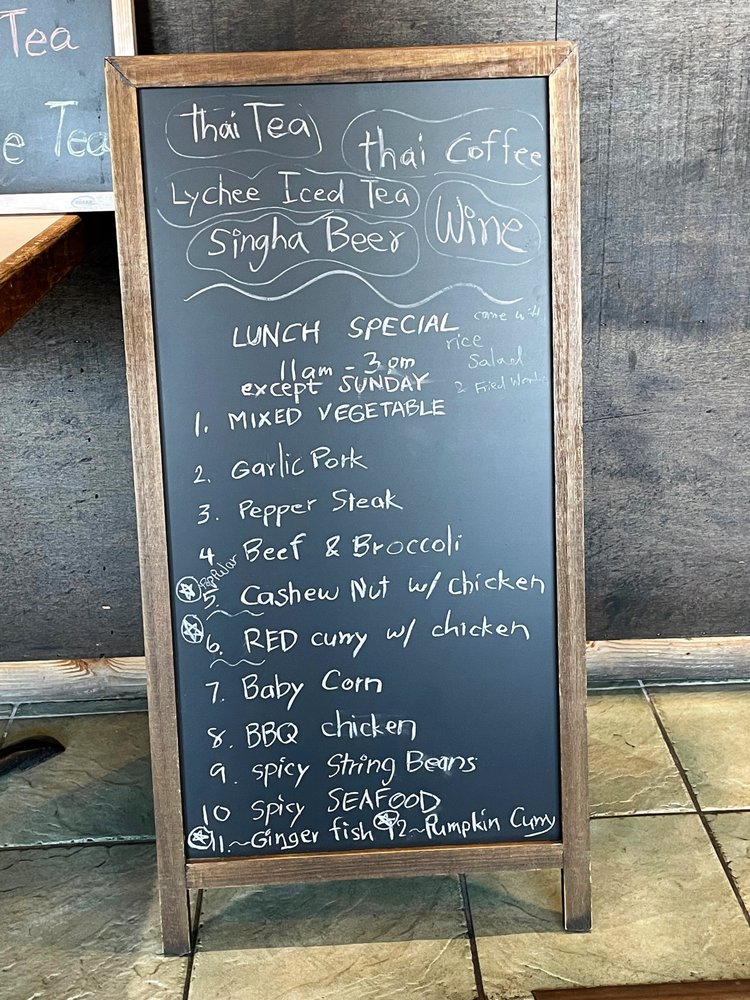 Tea
e Tea
thai Tea
thai Coffee
Lychee Iced Tea
Wine
Singha Beer
LUNCH SPECIAL
come with
rice
Salad
11am - 3pm
except SUNDAY
2 Fried
1. MIXED VEGETABLE
2. Garlic Pork
3. Pepper Steak
4 Beef & Broccoli
5. Cashew Nut w/ chicken
6. RED curry w/ chicken
7. Baby Corn
8. BBQ chicken
9. spicy String Beans
10 spicy SEAFOOD
11.~Ginger fish 12~Pumpkin Curry